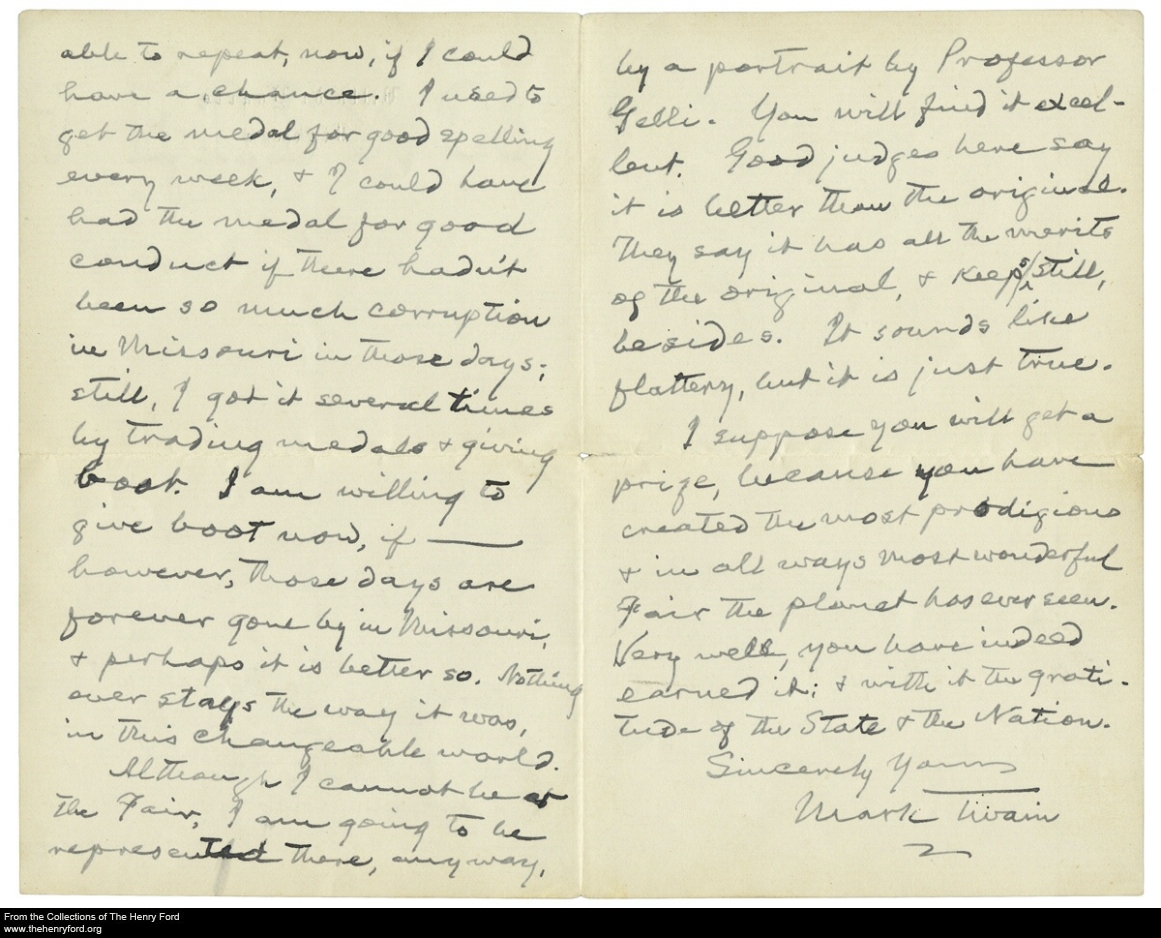 able to repeat, now, if I could
have a chance. I used to
get the medal for good spelling
every week, & I could have
had the medal for good
conduct if there hadn't
been so much corruption
in Missouri in those days;
still, I got it several times
by trading medals & giving
boot. I am willing to
give boot now, if ——
however, those days are
forever gone by in Missouri,
& perhaps it is better so. Nothing
ever stays the way it was,
in this changeable world.
Although I cannot be at
the Fair, I am going to be
represented there, anyway,
by a portrait by Professor
Gelli. You will find it excel-
lent. Good judges here say
it is better than the original.
They say it has all the merits
of the original, & keeps still,
besides. It sounds like
flattery, but it is just true.
I suppose you will get a
prize, because you have
created the most prodigious
& in all ways most wonderful
Fair the planet has ever seen.
Very well, you have indeed
earned it; & with it the grati-
tude of the State & the Nation.
Sincerely Yours
Mark Twain
From the Collections of The Henry Ford
www.thehenryford.org